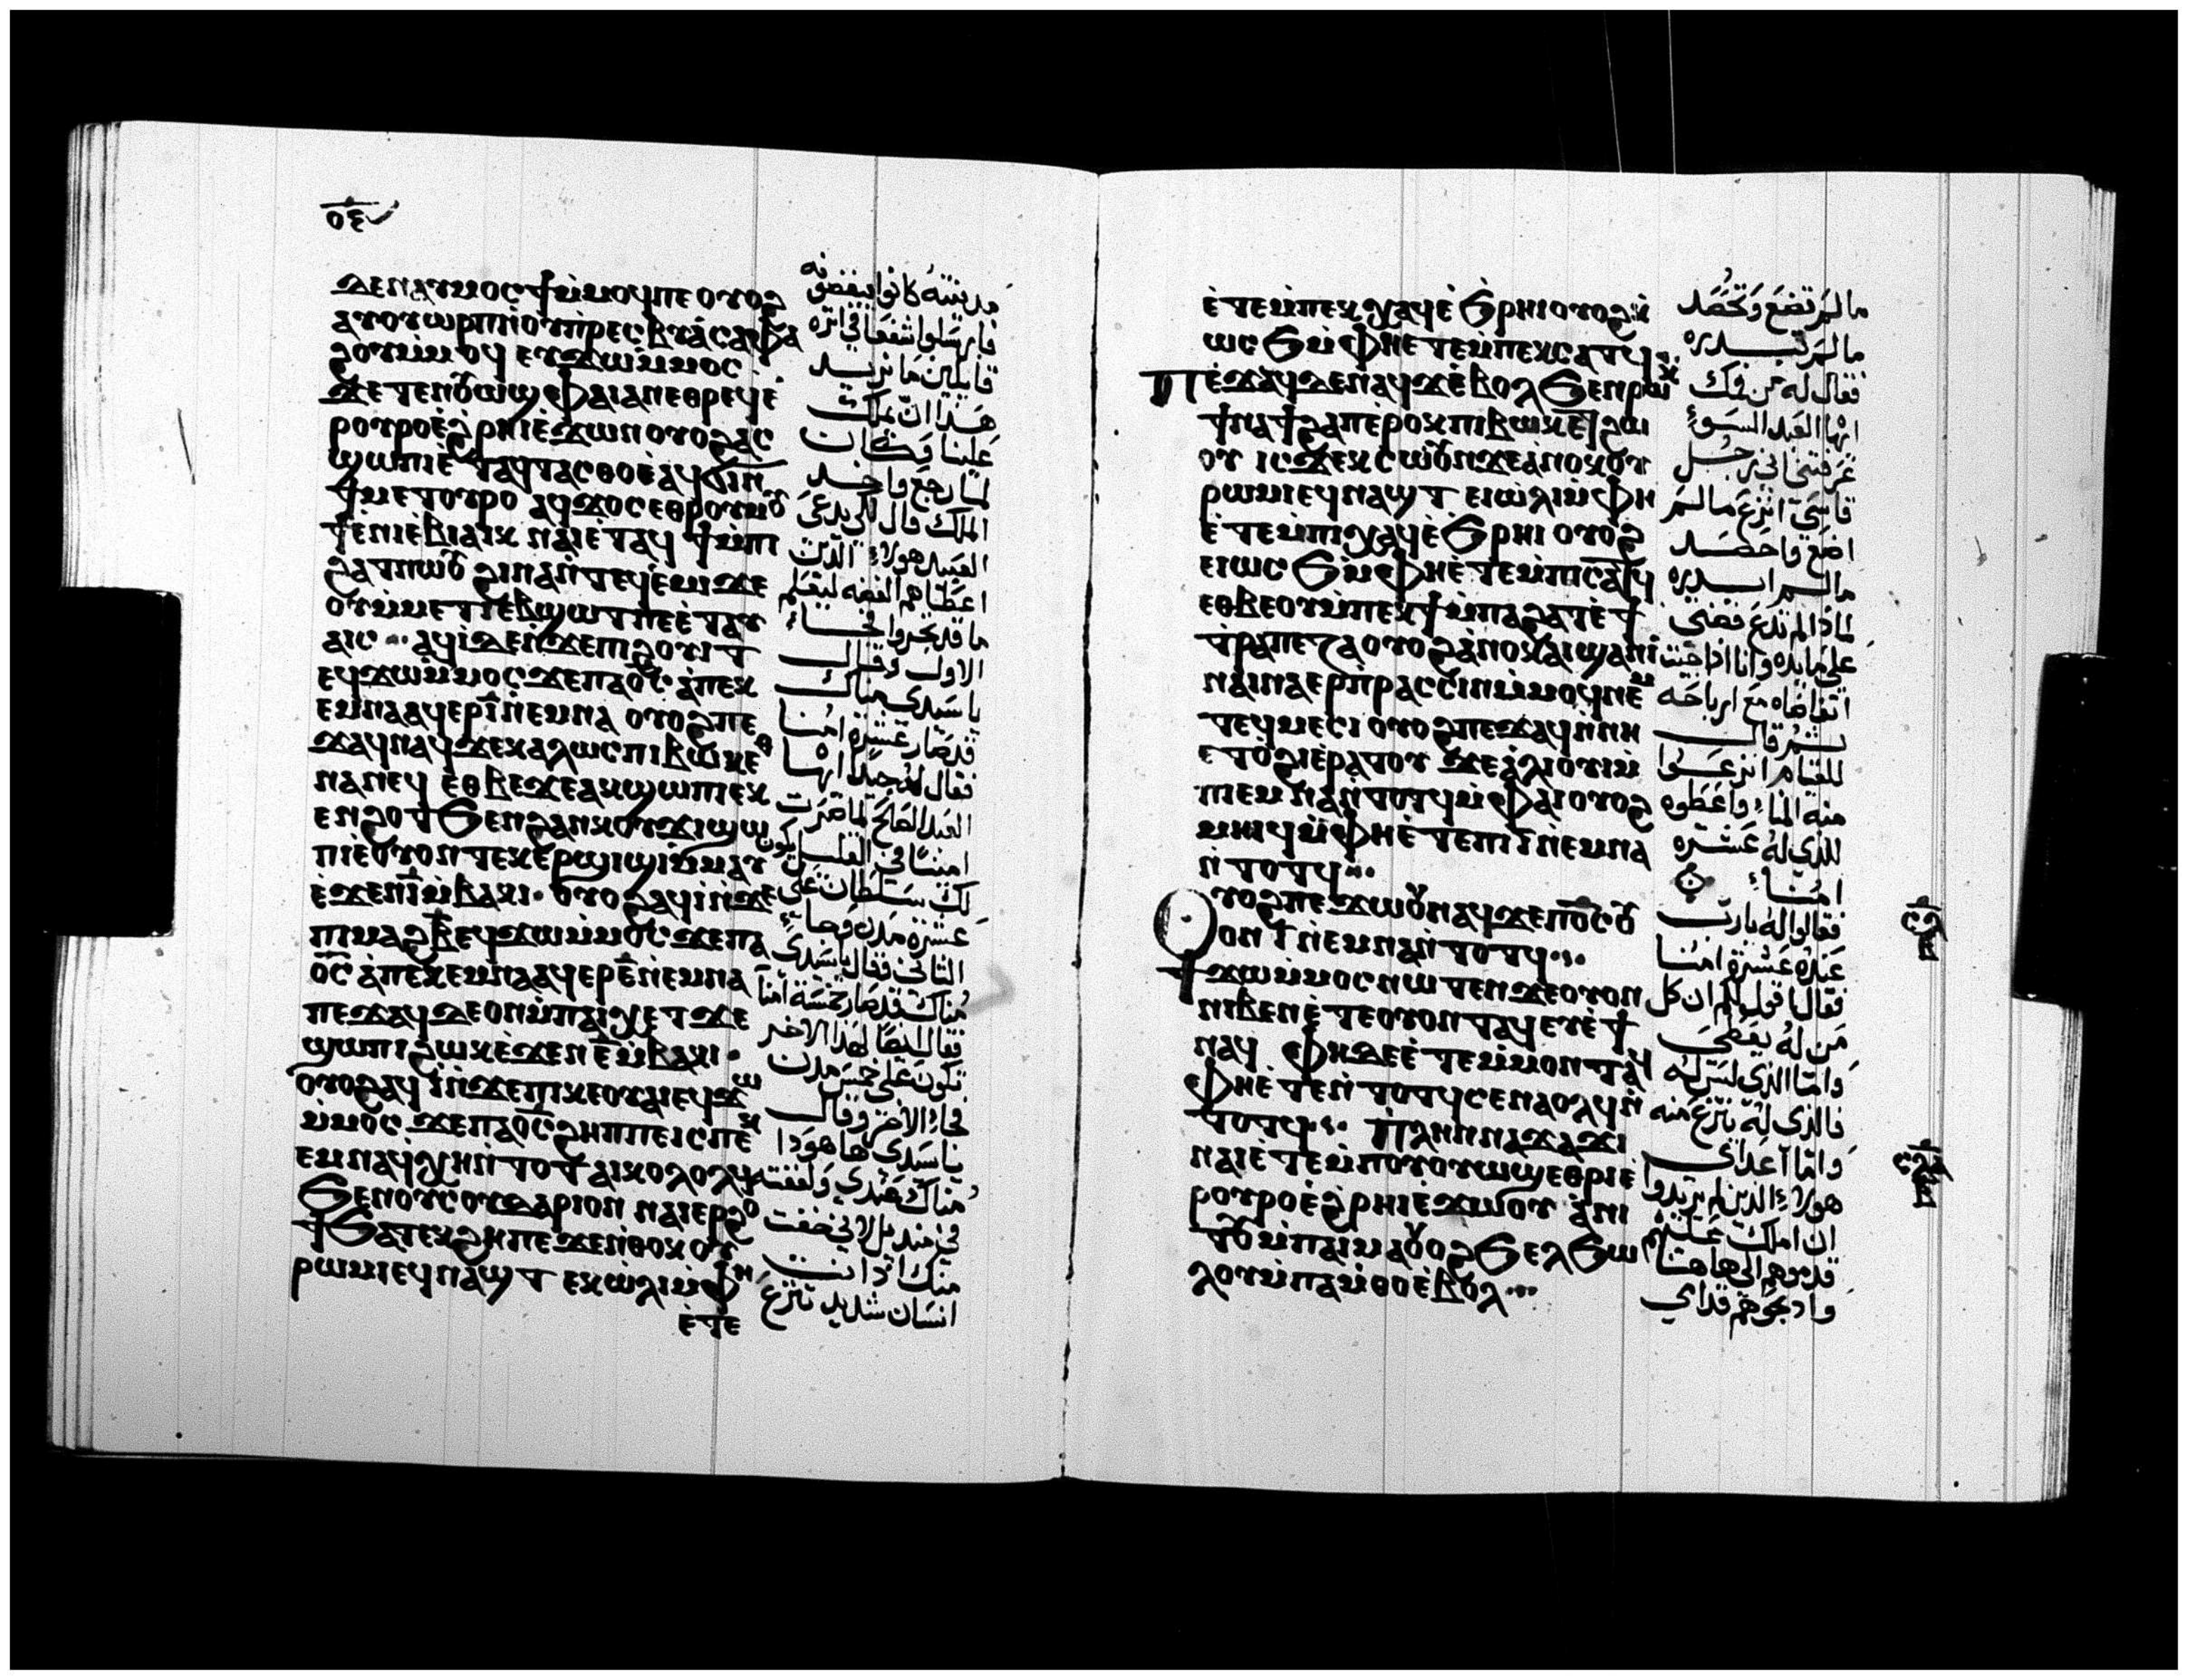 ⲇⲉ ⲛⲁⲩⲙⲟⲥϯ ⲙ̇ⲙⲟϥ ⲡⲉ ⲟⲩⲟϩ
ⲁⲩⲟⲩⲱⲣⲡ ⲛ̇ⲟⲩⲡ̇ⲣⲉⲥⲃⲩⲁ̇ ⲥⲁⲫⲁ
ϩⲟⲩ ⲙ̇ⲙⲟϥ ⲉⲩϫⲱ ⲙ̇ⲙⲟⲥ
ϫⲉ ⲧⲉⲛⲟⲩⲱϣ ⲫⲁⲓ ⲁⲛ ⲉⲑⲣⲉϥⲉ̇
ⲣⲟⲩⲣⲟ ⲉ̇ϩⲣⲏⲓ ⲉ̇ϫⲱⲛ ⲟⲩⲟϩ ⲁⲥ
ϣⲱⲡⲓ ⲉ̇ⲧⲁϥⲧⲁⲥⲑⲟ ⲉ̇ⲁϥϭⲓ ⲛ̇
ϯⲙⲉⲧⲟⲩⲣⲟ ⲁϥϫⲟⲥ ⲉⲑⲣⲟⲩⲙⲟⲩ
ϯ ⲉ̇ⲛⲓⲉ̇ⲃⲓⲁⲓⲕ ⲛⲁⲓ ⲉ̇ⲧⲁϥϯ ⲙ̇ⲡⲓ
ϩⲁⲧ ⲛⲱⲟⲩ ϩⲓⲛⲁ ⲛ̇ⲧⲉϥⲉ̇ⲙⲓ ϫⲉ
ⲟⲩ ⲙ̇ⲙⲉⲧⲓⲉⲃϣⲱⲧ ⲡⲉ ⲉ̇ⲧⲁⲩ
ⲁⲓⲥ ⲁϥⲓ̇ ⲇⲉ ⲛ̇ϫⲉ ⲡⲓϩⲟⲩⲓⲧ
ⲉϥϫⲱ ⲙ̇ⲙⲟⲥ ϫⲉ ⲡⲁⲟ̅ⲥ̅ ⲁ̇ⲡⲉⲕ
ⲉⲙⲛⲁ ⲁϥⲉⲣ ⲓ̅ ⲛ̇ⲉⲙⲛⲁ ⲟⲩⲟϩ ⲡⲉ
ϫⲁϥ ⲛⲁϥ ϫⲉ ⲕⲁⲗⲱⲥ ⲡⲓⲃⲱⲕ ⲉⲑ
ⲛⲁⲛⲉϥ ⲉ̇ⲑⲃⲉ ϫⲉ ⲁⲕϣⲱⲡⲓ ⲉⲕ
ⲉⲛϩⲟⲧ ϧⲉⲛ ϩⲁⲛⲕⲟⲩϫⲓ ϣⲱ
ⲡⲓ ⲉ̇ⲟⲩⲟⲛⲧⲉⲕ ⲉⲣϣⲓϣⲓ ⲙ̇ⲙⲁⲩ
ⲉ̇ϫⲉⲛ ⲓ̅ ⲙ̇ⲃⲁⲕⲓ ⲟⲩⲟϩ ⲁϥⲓ̇ ⲛ̇ϫⲉ
ⲡⲓⲙⲁϩⲃ̅ ⲉϥϫⲱ ⲙ̇ⲙⲟⲥ ϫⲉ ⲡⲁ
ⲟ̅ⲥ̅ ⲁ̇ⲡⲉⲕⲉⲙⲛⲁ ⲁϥⲉⲣ ⲉ̅ ⲛ̇ⲉⲙⲛⲁ
ⲡⲉϫⲁϥ ⲇⲉ ⲟⲛ ⲙ̇ⲡⲁⲓⲭⲉⲧ ϫⲉ
ϣⲱⲡⲓ ϩⲱⲕ ⲉ̇ϫⲉⲛ ⲉ̅ ⲙ̇ⲃⲁⲕⲓ
ⲟⲩⲟϩ ⲁϥⲓ̇ ⲛ̇ϫⲉ ⲡⲓⲕⲉⲟⲩⲁⲓ ⲉϥϫⲱ
ⲙ̇ⲙⲟⲥ ϫⲉ ⲡⲁⲟ̅ⲥ̅ ϩⲏⲡⲡⲉ ⲓⲥ ⲡⲉⲕ
ⲉⲙⲛⲁ ϥⲭⲏ ⲛ̇ⲧⲟⲧ ⲁⲓⲕⲟⲗⲟⲗϥ
ϧⲉⲛ ⲟⲩⲥⲟⲩⲇⲁⲣⲓⲟⲛ ⲛⲁⲓⲉⲣϩⲟ
ϯ ϧⲁⲧⲉⲕϩⲏ ⲡⲉ ϫⲉ ⲛ̇ⲑⲟⲕ ⲟⲩ
ⲣⲱⲙⲓ ⲉϥⲛⲁϣⲧ ⲉⲕⲱ̇ⲗⲓ ⲙ̇ⲫⲏ
ⲉ̇ⲧⲉ
مدينته كانوا يبغضونه
فارسلوا شفعا في اثره
قايلين ما نريد
هذا ان يملك
علينا وكان
لما رجع واخد
الملك قال لكي يدعى
العبيد هولاء الذين
اعطاهم الفضه ليعلم
ما قد تجروا فجاء
الاول وقال
يا سيدي مناك
قد صار عشرة امنا
فقال له جيدا ايها
العبد الصالح لما صرت
امينا في القليل يكون
لك سلطان على
عشرة مدن وجاء
الثاني فقال يا سيدي
مناك قد صار خمسة امنا
فقال ايضا لهذا الاخر
تكون على خمس مدن
فجاء الاخر وقال
يا سيدي ها هوذا
مناك عندي ولففته
في منديل لاني خفت
منك اد انت
انسان شديد تنزع
ⲉ̇ⲧⲉ ⲙ̇ⲡⲉⲕⲭⲁϥ ⲉ̇ϧⲣⲏⲓ ⲟⲩⲟϩ ⲕ̇
ⲱⲥϧ ⲙ̇ⲫⲏ ⲉ̇ⲧⲉ ⲙ̇ⲡⲉⲕⲥⲁⲧϥ
ⲡⲉ̇ϫⲁϥ ⲇⲉ ⲛⲁϥ ϫⲉ ⲉ̇ⲃⲟⲗ ϧⲉⲛ ⲣⲱⲕ
ϯⲛⲁϯϩⲁⲡ ⲉ̇ⲣⲟⲕ ⲡⲓⲃⲱⲕ ⲉⲧϩⲱ
ⲟⲩ ⲓⲥϫⲉ ⲕⲥⲱⲟⲩⲛ ϫⲉ ⲁ̇ⲛⲟⲕ ⲟⲩ
ⲣⲱⲙⲓ ⲉϥⲛⲁϣⲧ ⲉⲓⲱ̇ⲗⲓ ⲙ̇ⲫⲏ
ⲉ̇ⲧⲉ ⲙ̇ⲡⲓⲭⲁϥ ⲉ̇ϧⲣⲏⲓ ⲟⲩⲟϩ
ⲉⲓⲱⲥϧ ⲙ̇ⲫⲏ ⲉ̇ⲧⲉ ⲙ̇ⲡⲓⲥⲁⲧϥ
ⲉⲑⲃⲉ ⲟⲩ ⲙ̇ⲡⲉⲕϯ ⲙ̇ⲡⲁϩⲁⲧ ⲉ̇ϯ
ⲧ̇ⲣⲁⲡⲉⲍⲁ ⲟⲩⲟϩ ⲁ̇ⲛⲟⲕ ⲁⲓϣⲁⲛⲓ̇
ⲛⲁⲓⲛⲁⲉⲣⲡ̇ⲣⲁⲥⲥⲓⲛ ⲙ̇ⲙⲟϥ ⲛⲉⲙ
ⲧⲉϥⲙⲉⲥⲓ ⲟⲩⲟϩ ⲡⲉϫⲁϥ ⲛ̇ⲛⲏ
ⲉⲧⲟ̇ϩⲓ ⲉ̇ⲣⲁⲧⲟⲩ ϫⲉ ⲁ̇ⲗⲓⲟⲩⲓ ⲙ̇
ⲡⲓⲉⲙⲛⲁ ⲛ̇ⲧⲟⲧϥ ⲙ̇ⲫⲁⲓ ⲟⲩⲟϩ
ⲙⲏⲓϥ ⲙ̇ⲫⲏ ⲉ̇ⲧⲉ ⲡⲓⲓ̅ ⲛ̇ⲉⲙⲛⲁ
ⲛ̇ⲧⲟⲧϥ
ⲟⲩⲟϩ ⲡⲉϫⲱⲟⲩ ⲛⲁϥ ϫⲉ ⲡⲟ̅ⲥ̅ ⲟⲩ
ⲟⲛ ⲓ̅ ⲛ̇ⲉⲙⲛⲁ ⲛ̇ⲧⲟⲧϥ
ϯϫⲱ ⲙ̇ⲙⲟⲥ ⲛⲱⲧⲉⲛ ϫⲉ ⲟⲩⲟⲛ
ⲛⲓⲃⲉⲛ ⲉ̇ⲧⲉ ⲟⲩⲟⲛⲧⲁϥ ⲉⲩⲉ̇ϯ
ⲛⲁϥ ⲫⲏ ⲇⲉ ⲉ̇ⲧⲉ ⲙ̇ⲙⲟⲛⲧⲁϥ
ⲫⲏ ⲉ̇ⲧⲉⲛⲧⲟⲧϥ ⲥⲉⲛⲁⲟⲗϥ ⲛ̇
ⲧⲟⲧϥ ⲡⲗⲏⲛ ⲛⲁϫⲁϫⲓ
ⲛⲁⲓ ⲉ̇ⲧⲉ ⲙ̇ⲡⲟⲩⲟⲩⲱϣ ⲉⲑⲣⲓⲉ̇
ⲣⲟⲩⲣⲟ ⲉ̇ϩⲣⲏⲓ ⲉ̇ϫⲱⲟⲩ ⲁ̇ⲛⲓ
ⲧⲟⲩ ⲙ̇ⲡⲁⲓⲙⲁ ⲟⲩⲟϩ ϧⲉⲗϧⲱ
ⲗⲟⲩ ⲙ̇ⲡⲁⲙ̇ⲑⲟ ⲉ̇ⲃⲟⲗ
ما لم تضع وتحصد
ما لم تبدره
فقال له من فمك
ايها العبد السوء
عرفتني اني رجل
قاسي انزع ما لم
اضع واحصد
ما لم ابدره
لماذا لم تدع فضتي
على مايده وانا اذا جيت
اتقاضاه مع ارباحه
ثم قال
للقيام انزعوا
منه المنا واعطوه
للذي له عشرة
امنا
فقالوا له يا رب
عنده عشرة امنا
فقال اقول لكم ان كل
من له يعطى
واما الذي ليس له
فالذي له ينزع منه
واما اعداي
هولاء الذين لم يريدوا
ان املك عليهم
قدموهم الى هاهنا
وادبحوهم قدامي